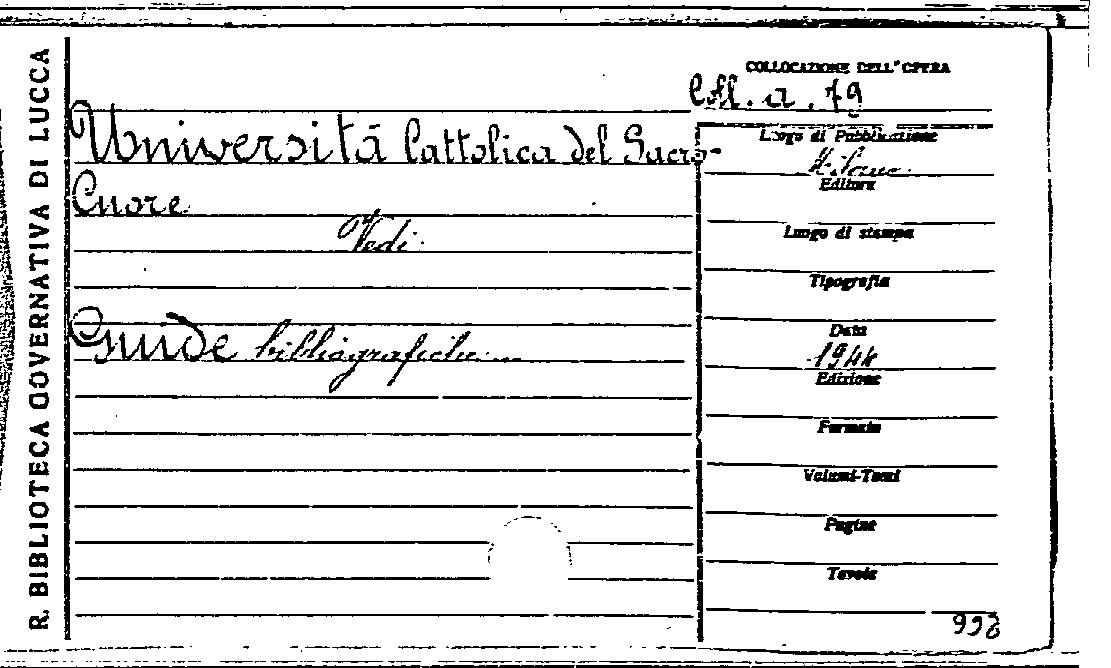 R. BIBLIOTECA GOVERNATIVA DI LUCCA
COLLOCAZIONE DELL'OPERA
Coll. a. 79
Università Cattolica del Sacro-
Cuore
Vedi
Guide bibliografiche
Luogo di Pubblicazione
Milano
Editore
Luogo di stampa
Tipografia
Data
1944
Edizione
Formato
Volumi-Tomi
Pagine
Tavole